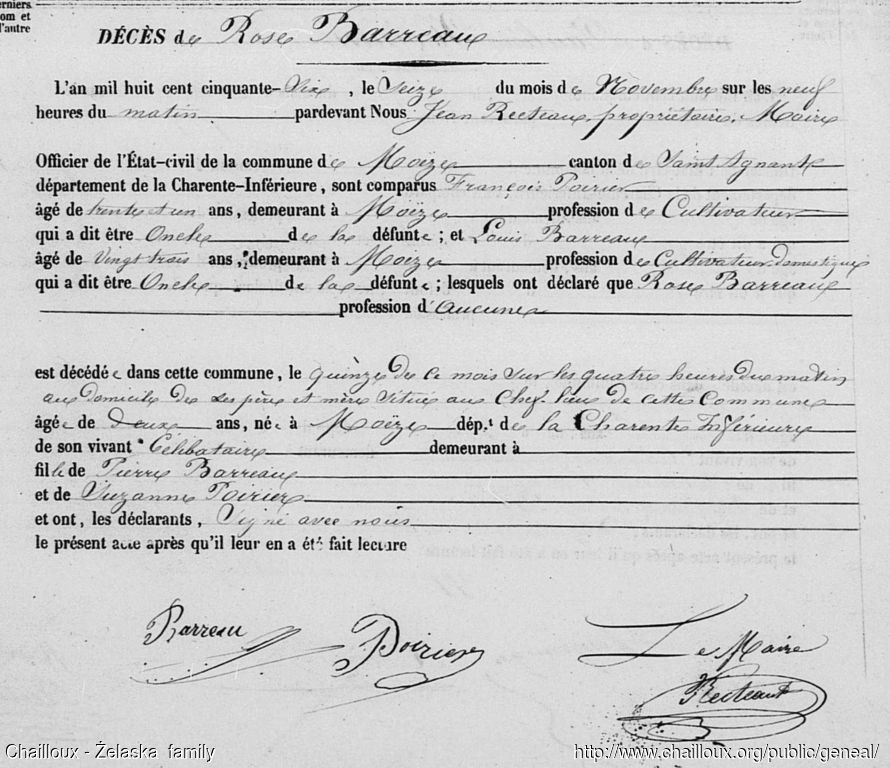 erniers
om et
l'autre
DÉCÈS de Rose Barreau
L'an mil huit cent cinquante-Six, le Seize du mois de Novembre sur les neuf
heures du matin pardevant Nous Jean Recteau, propriétaire, Maire
Officier de l'État-civil de la commune de Moëze canton de Saint Agnant
département de la Charente-Inférieure, sont comparus François Poirier
âgé de trente et un ans, demeurant à Moëze profession de Cultivateur
qui a dit être Oncle de la défunte; et Louis Barreau
âgé de Vingt trois ans, demeurant à Moëze profession de Cultivateur domestique
qui a dit être Oncle de la défunte; lesquels ont déclaré que Rose Barreau
profession d'Aucune
est décédée dans cette commune, le quinze de ce mois sur les quatre heures du matin
au domicile de ses père et mère Situé au Chef-lieu de cette Commune
âgée de deux ans, née à Moëze dép.t de la Charente Inférieure
de son vivant Célibataire demeurant à
fille de Pierre Barreau
et de Suzanne Poirier
et ont, les déclarants, Signé avec nous
le présent acte après qu'il leur en a été fait lecture
Barreau Poirier Le Maire
Recteau
Chailloux - Żelaska family http://www.chailloux.org/public/geneal/